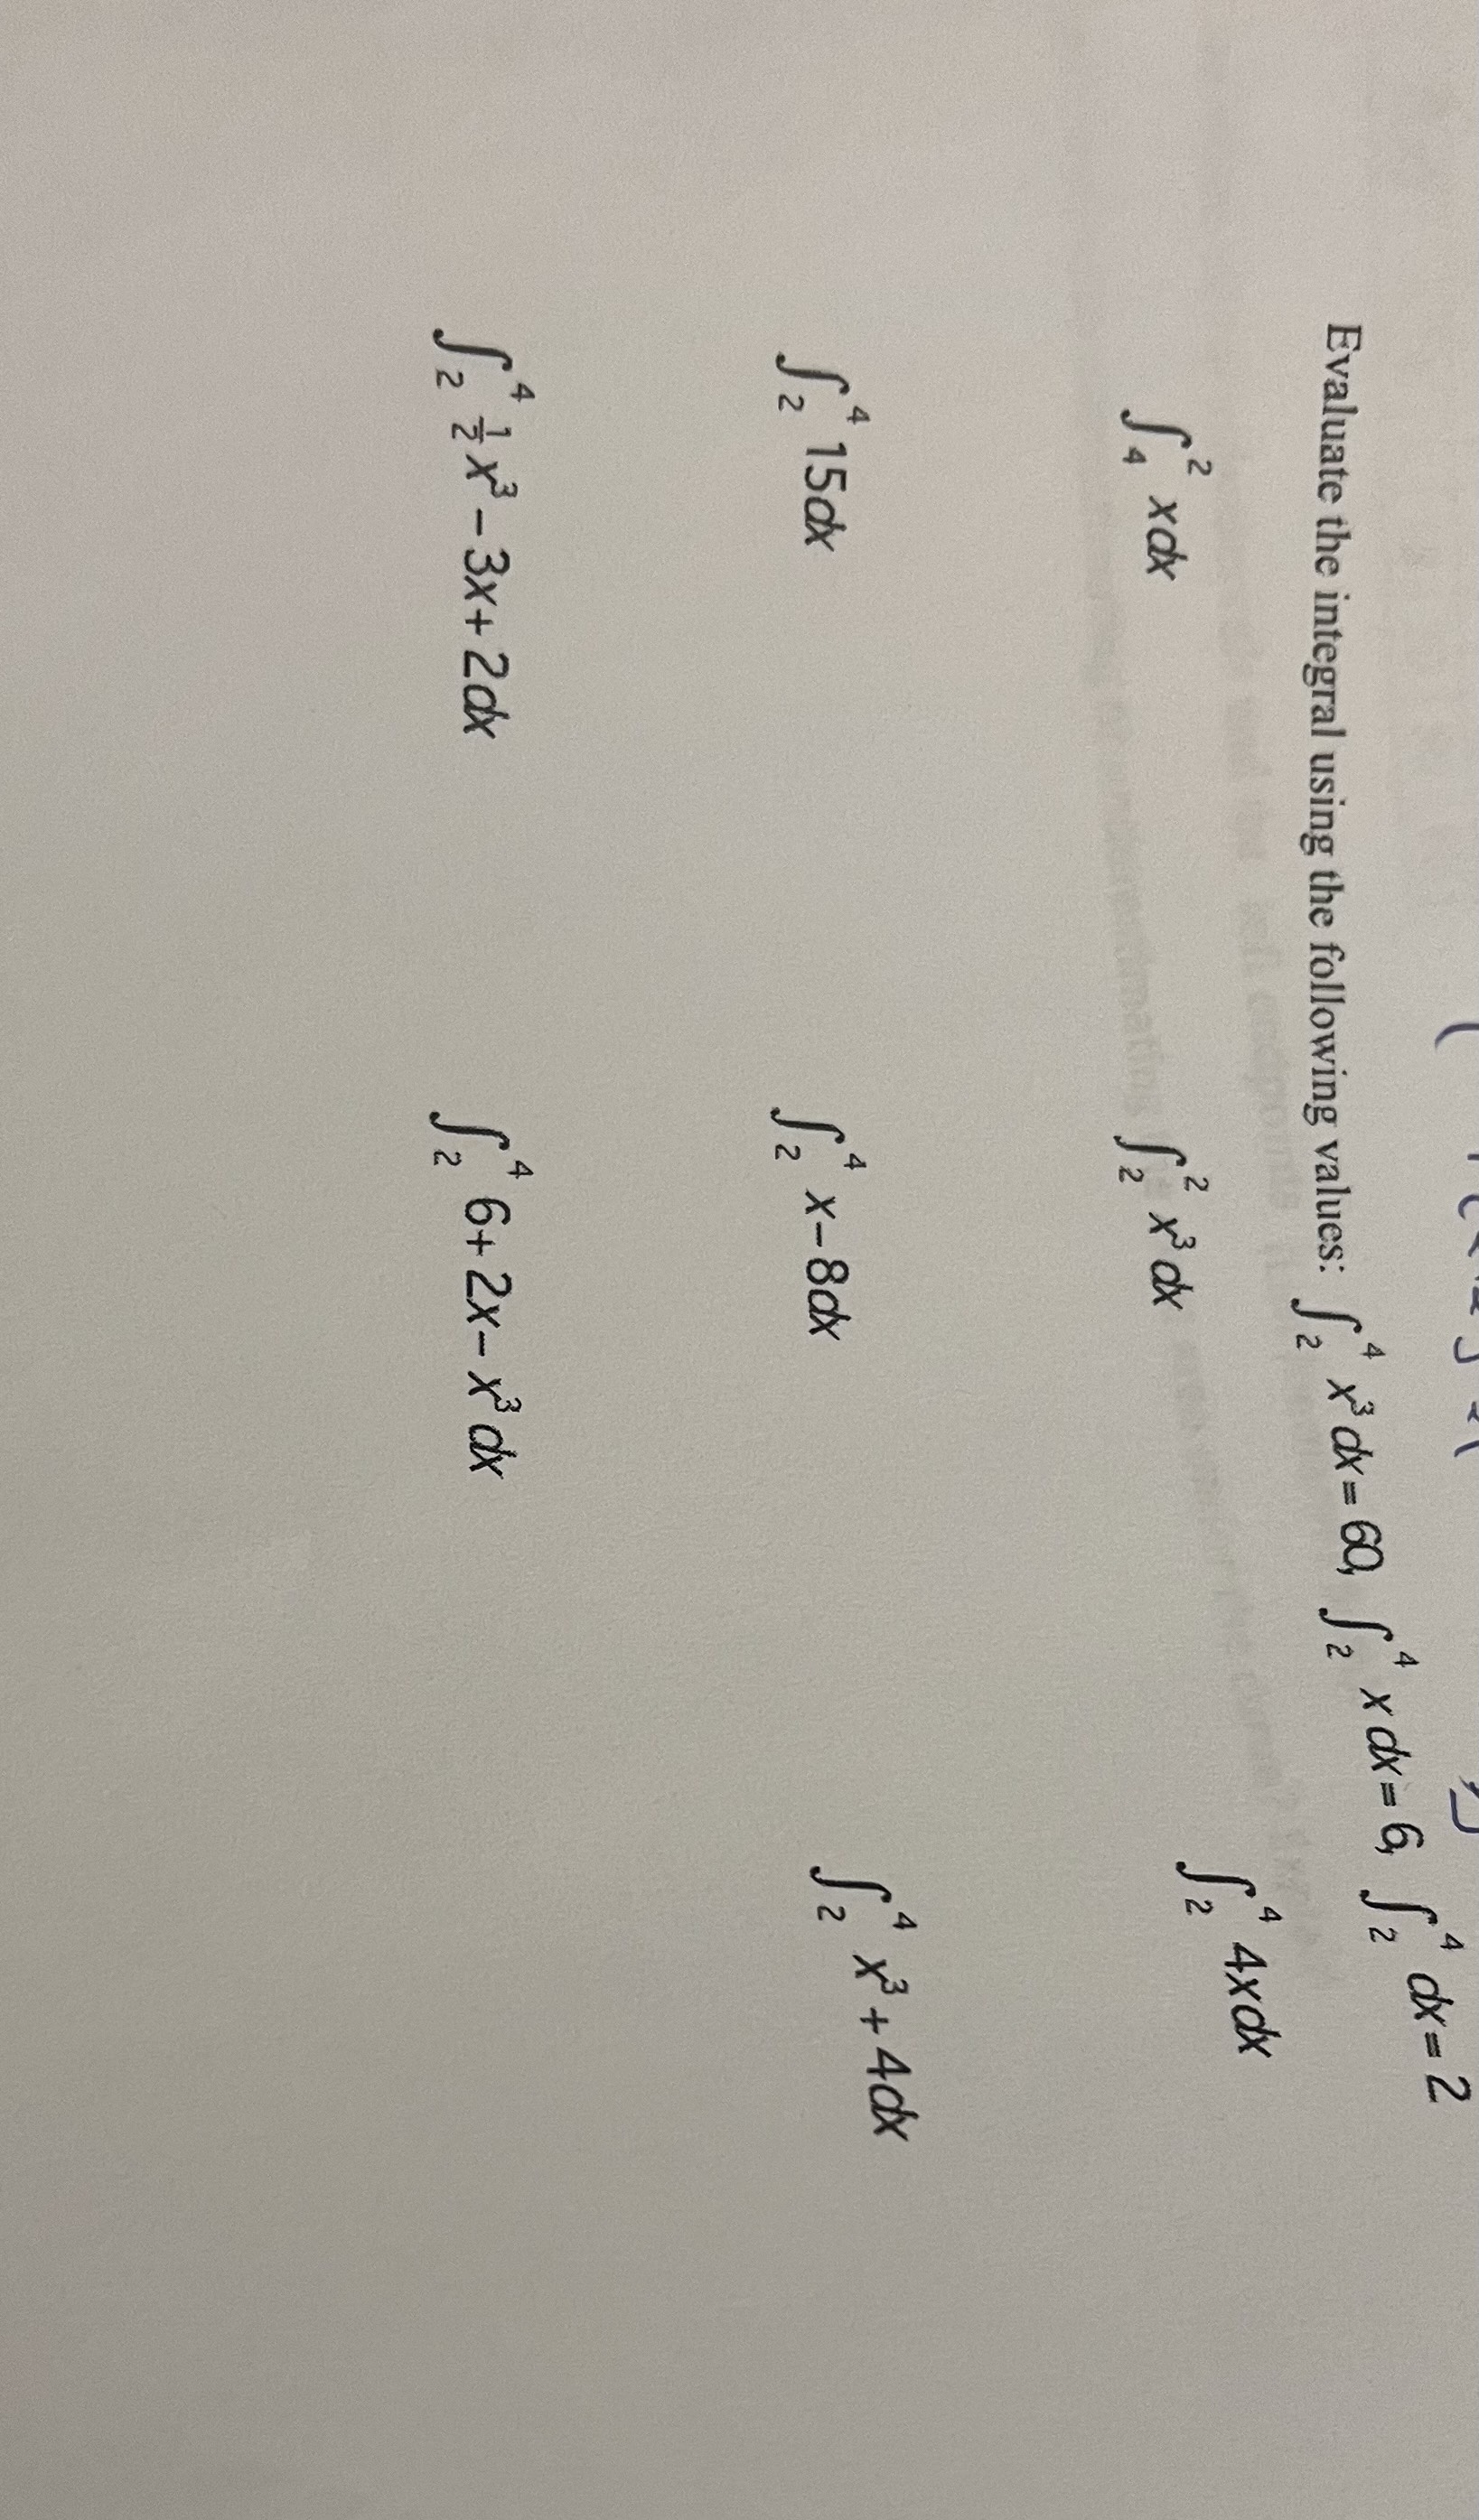 Evaluate the integral using the following values: ∫₂⁴ x³ dx = 60, ∫₂⁴ x dx = 6, ∫₂⁴ dx = 2
∫₄² x dx ∫₂² x³ dx ∫₂⁴ 4x dx
∫₂⁴ 15 dx ∫₂⁴ x – 8 dx ∫₂⁴ x³ + 4 dx
∫₂⁴ ½ x³ – 3x + 2 dx ∫₂⁴ 6 + 2x – x³ dx